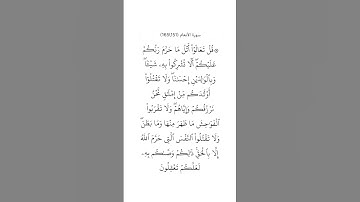 سورة الأنعام (151\165)
۞ قُلْ تَعَالَوْا۟ أَتْلُ مَا حَرَّمَ رَبُّكُمْ
عَلَيْكُمْ أَلَّا تُشْرِكُوا۟ بِهِۦ شَيْـًٔا
وَبِٱلْوَٰلِدَيْنِ إِحْسَٰنًا وَلَا تَقْتُلُوٓا۟
أَوْلَٰدَكُم مِّنْ إِمْلَٰقٍ نَّحْنُ
نَرْزُقُكُمْ وَإِيَّاهُمْ وَلَا تَقْرَبُوا۟
ٱلْفَوَٰحِشَ مَا ظَهَرَ مِنْهَا وَمَا بَطَنَ
وَلَا تَقْتُلُوا۟ ٱلنَّفْسَ ٱلَّتِى حَرَّمَ ٱللَّهُ
إِلَّا بِٱلْحَقِّ ذَٰلِكُمْ وَصَّىٰكُم بِهِۦ
لَعَلَّكُمْ تَعْقِلُونَ